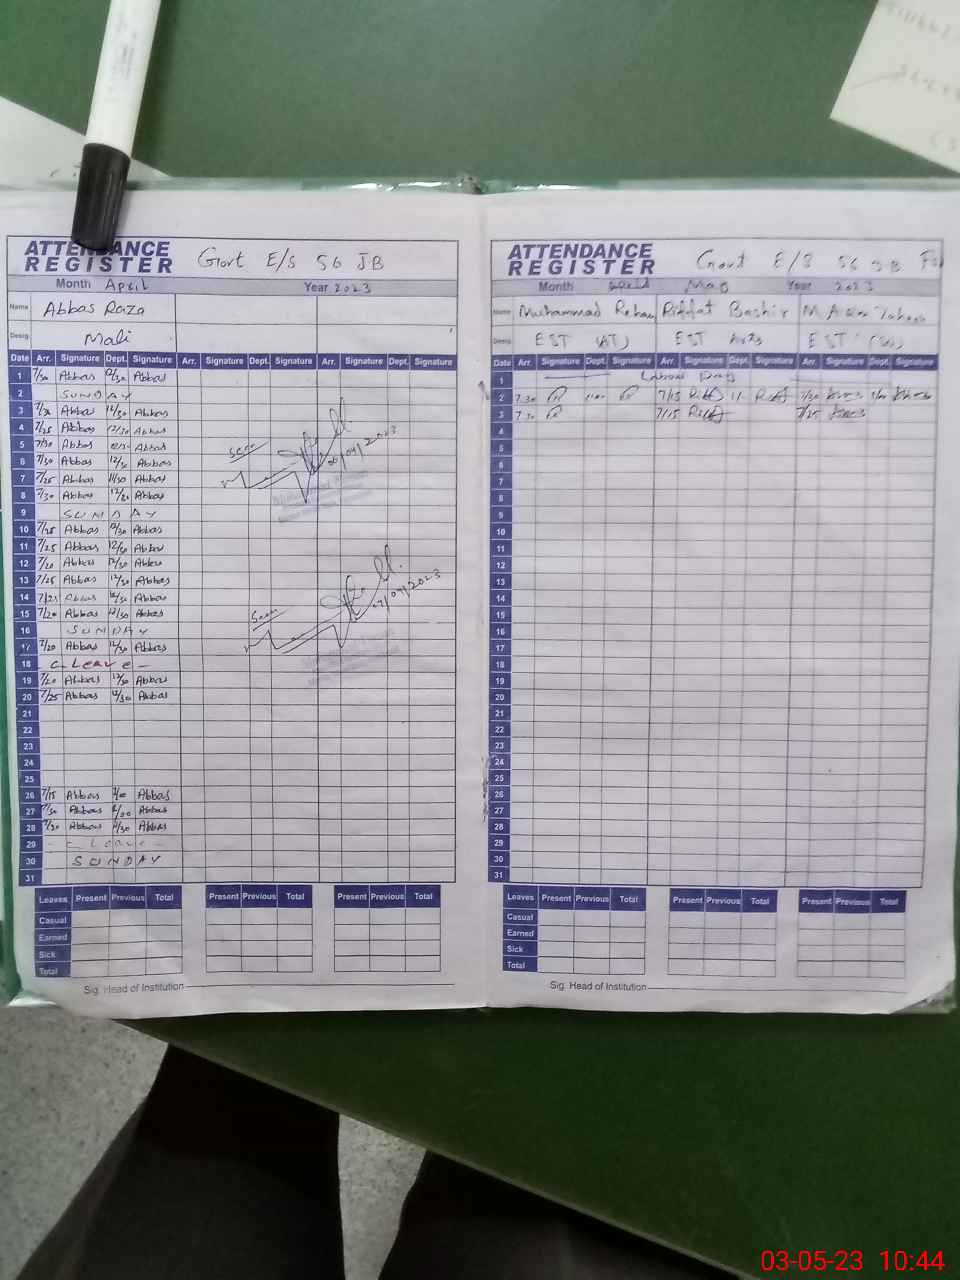 ATTENDANCE
REGISTER
Govt E/S 56 JB
Month April Year 2023
Name Abbas Raza
Desig. Mali
Date Arr. Signature Dept. Signature Arr. Signature Dept. Signature Arr. Signature Dept. Signature
1 7/30 Abbas 12/30 Abbas
2 SUNDAY
3 7/30 Abbas 12/30 Abbas
4 7/25 Abbas 12/30 Abbas
5 7/30 Abbas Abbas
6 7/30 Abbas 12/30 Abbas
7 7/25 Abbas 11/30 Abbas
8 7/30 Abbas 12/30 Abbas
9 SUNDAY
10 7/25 Abbas 12/30 Abbas
11 7/25 Abbas 12/30 Abbas
12 7/20 Abbas 12/30 Abbas
13 7/25 Abbas 12/30 Abbas
14 7/25 Abbas 12/30 Abbas
15 7/20 Abbas 12/30 Abbas
16 SUNDAY
17 7/20 Abbas 12/30 Abbas
18 - C Leave -
19 7/20 Abbas 12/30 Abbas
20 7/25 Abbas 12/30 Abbas
21
22
23
24
25
26 7/15 Abbas Abbas
27 7/30 Abbas Abbas
28 7/30 Abbas Abbas
29 - C Leave -
30 SUNDAY
31
Seen
Seen
Leaves Present Previous Total Present Previous Total Present Previous Total
Casual
Earned
Sick
Total
Sig. Head of Institution
ATTENDANCE
REGISTER
Govt E/S 56 JB
Month May Year 2023
Name Muhammad Rehan Riffat Bashir M
Desig. EST (AT) EST EST
Date Arr. Signature Dept. Signature Arr. Signature Dept. Signature Arr. Signature Dept. Signature
1 Labour Day
2 7:30 7/15 Riffat 7/30
3 7:30 7/15 Riffat 7/25
4
5
6
7
8
9
10
11
12
13
14
15
16
17
18
19
20
21
22
23
24
25
26
27
28
29
30
31
Leaves Present Previous Total Present Previous Total Present Previous Total
Casual
Earned
Sick
Total
Sig. Head of Institution
03-05-23 10:44